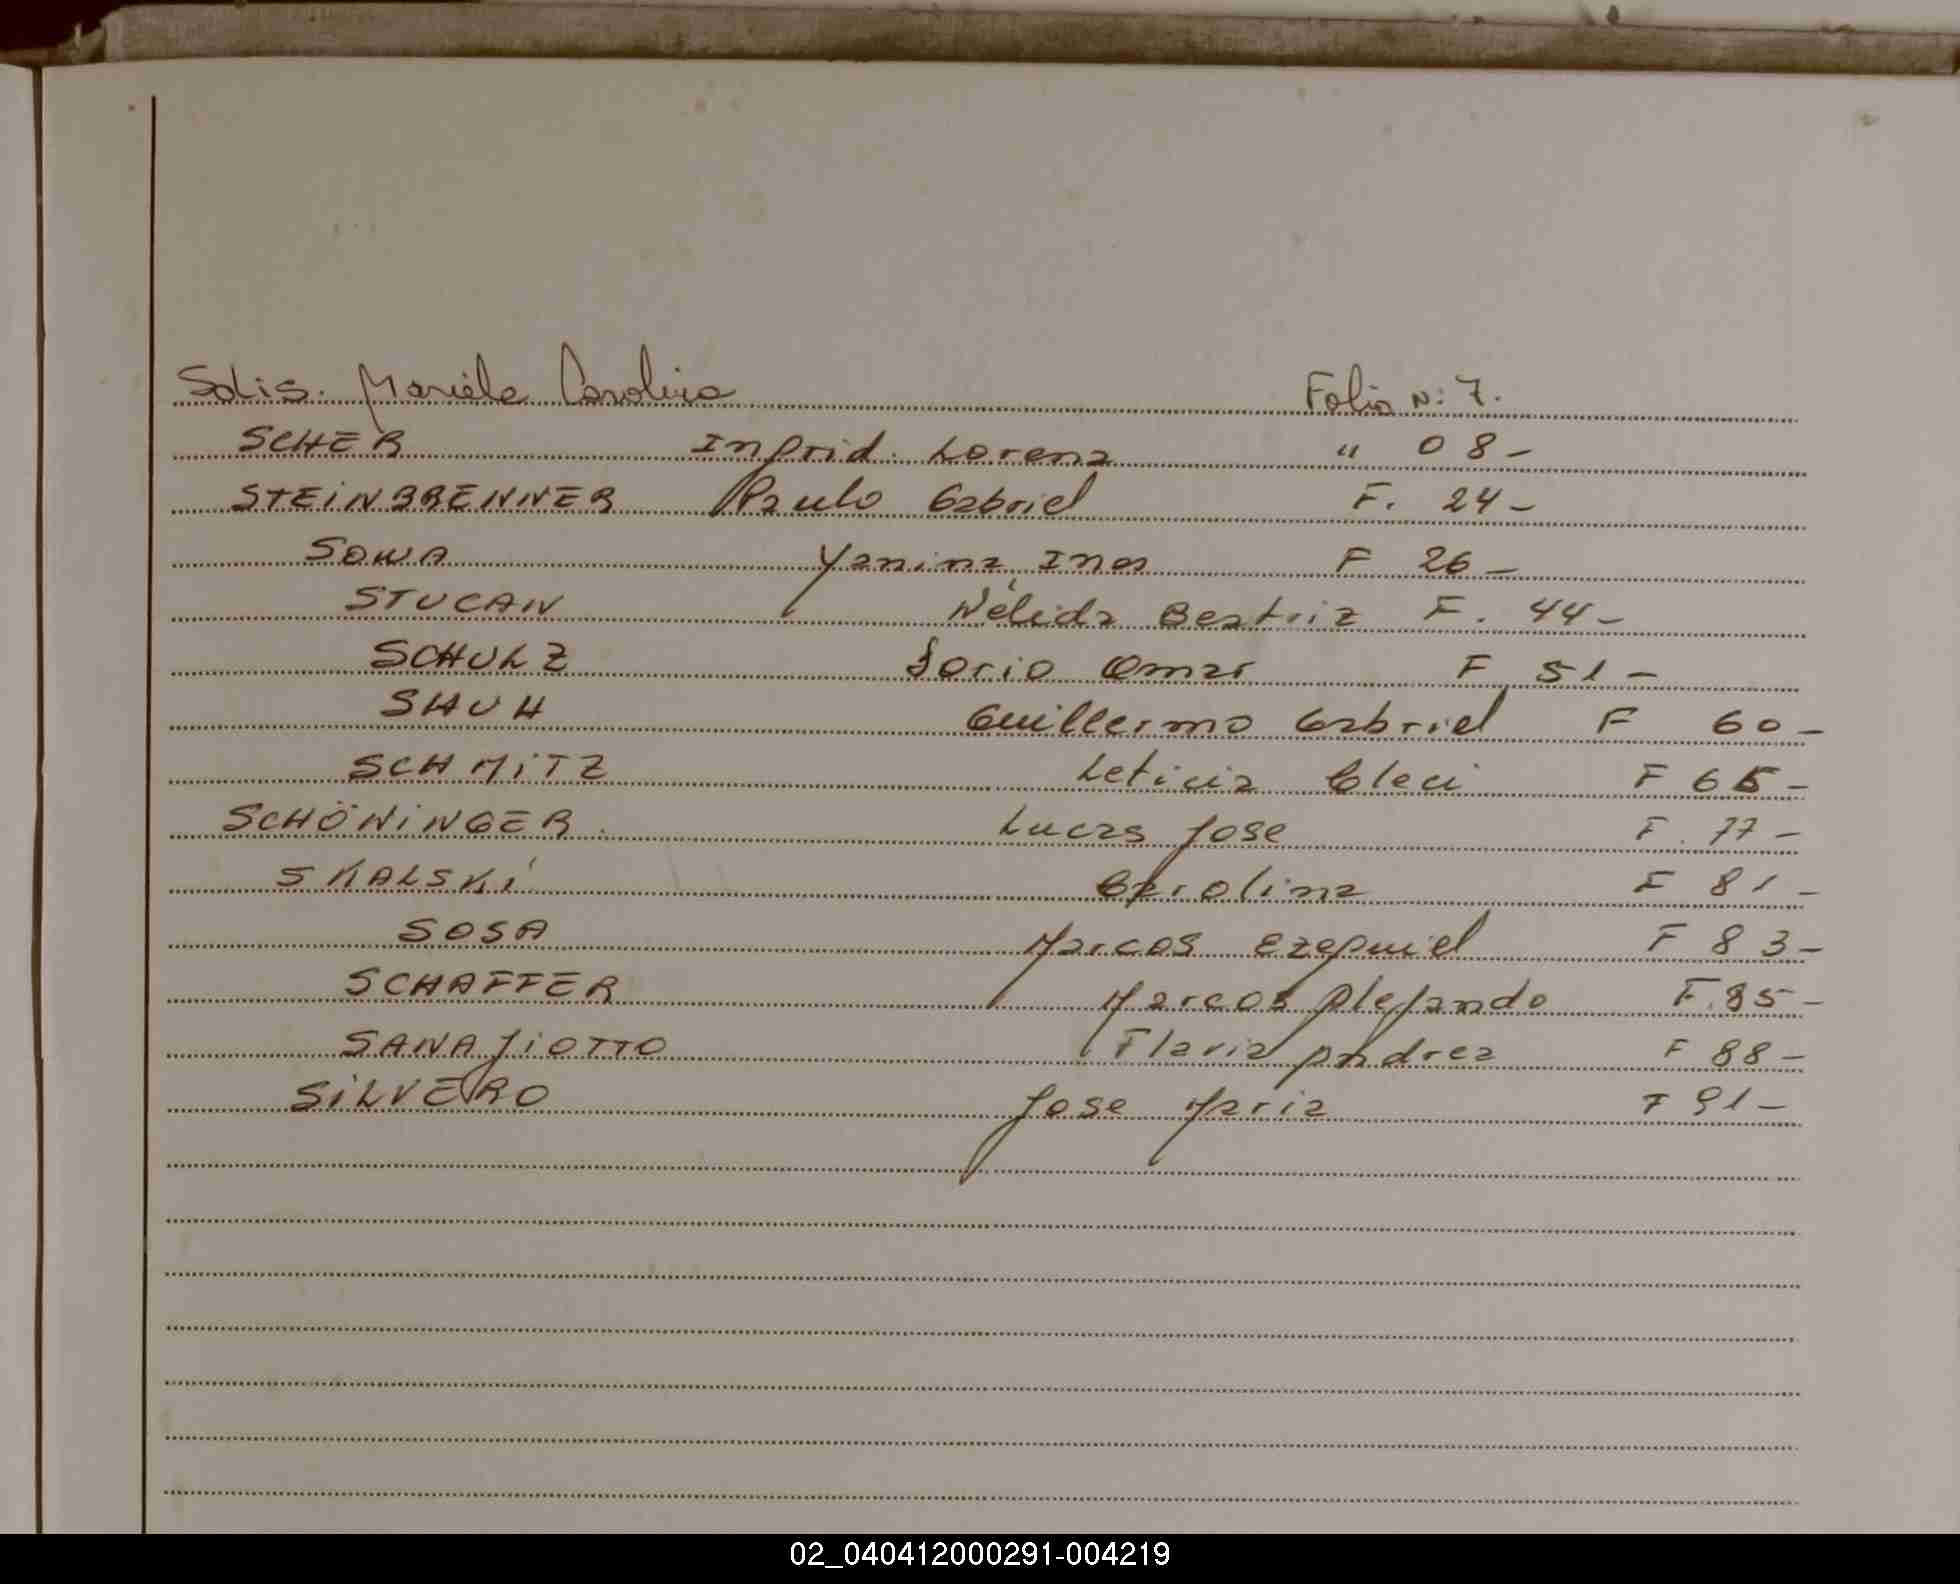 Solis. Mariela Carolina Folio N: 7.
SCHER Ingrid Lorena " 08-
STEINBRENNER Paulo Gabriel F. 24-
SOWA Yanina Ines F 26-
STUCAN Nélida Beatriz F. 44-
SCHULZ Dario Omar F 51-
Guillermo Gabriel F 60-
SCHMITZ Leticia Cleci F 65-
SCHÖNINGER Lucas Jose F. 77-
SKALSKI Carolina F 81-
SOSA Marcos Ezequiel F 83-
SCHAFFER Marcos Alejando F. 85-
SANAJIOTTO Flavia Andrea F 88-
SILVERO Jose Maria F 91-
02_040412000291-004219